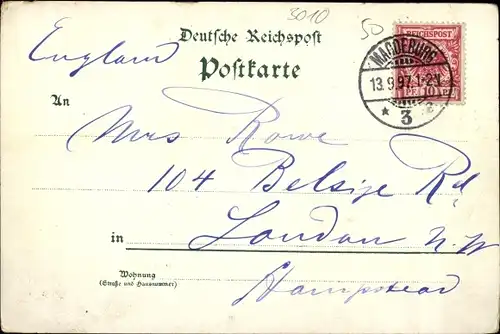 3010
50
Deutsche Reichspost
Postkarte
REICHSPOST
MAGDEBURG
13.9.97. 1-2N
* 3 a
PF. 10 PF.
England
An
Mrs Rowe
104 Belsize Rd.
in London N.W
Hampstead
Wohnung
(Straße und Hausnummer)